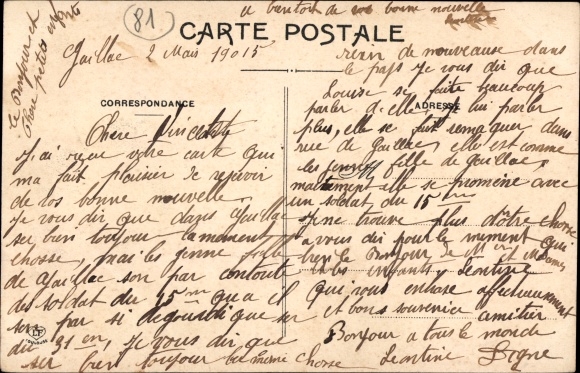 a bientot de bonne nouvelle
81
CARTE POSTALE
le Bonjour et
Chere petits
Gaillac 2 Mais 19015
CORRESPONDANCE
Chere
J'ai reçu votre carte qui
ma fait plaisir de reçevoir
de vos bonne nouvelle
Je vous dir que dans Gaillac
ser bien toujour la meme
chosse, mais les genne
de Gaillac son pas contante
des soldat du 15me qua il
sont pas si degourdit que ser
du 31 en, Je vous dir que
ser bien toujour la meme chosse
rien de nouveause dans
le pays Je vous dir que
Louise se faite beaucoup
parler d'elle, lui parler
ADRESSE
plus, elle se fait remaquer dans
rue de Gaillac, elle est comme
les fille de Gaillac,
maltement elle se promène avec
un soldat du 15me
Je ne trouve plus d'otre chosse
a vous dir pour le mument qui
bien le Bonjour de Mr et Madame
et les enfants, Leontine
qui vous enbrase affectueusement
et bons souvenice amitier
Bonjour a tous le monde
Leontine Signe